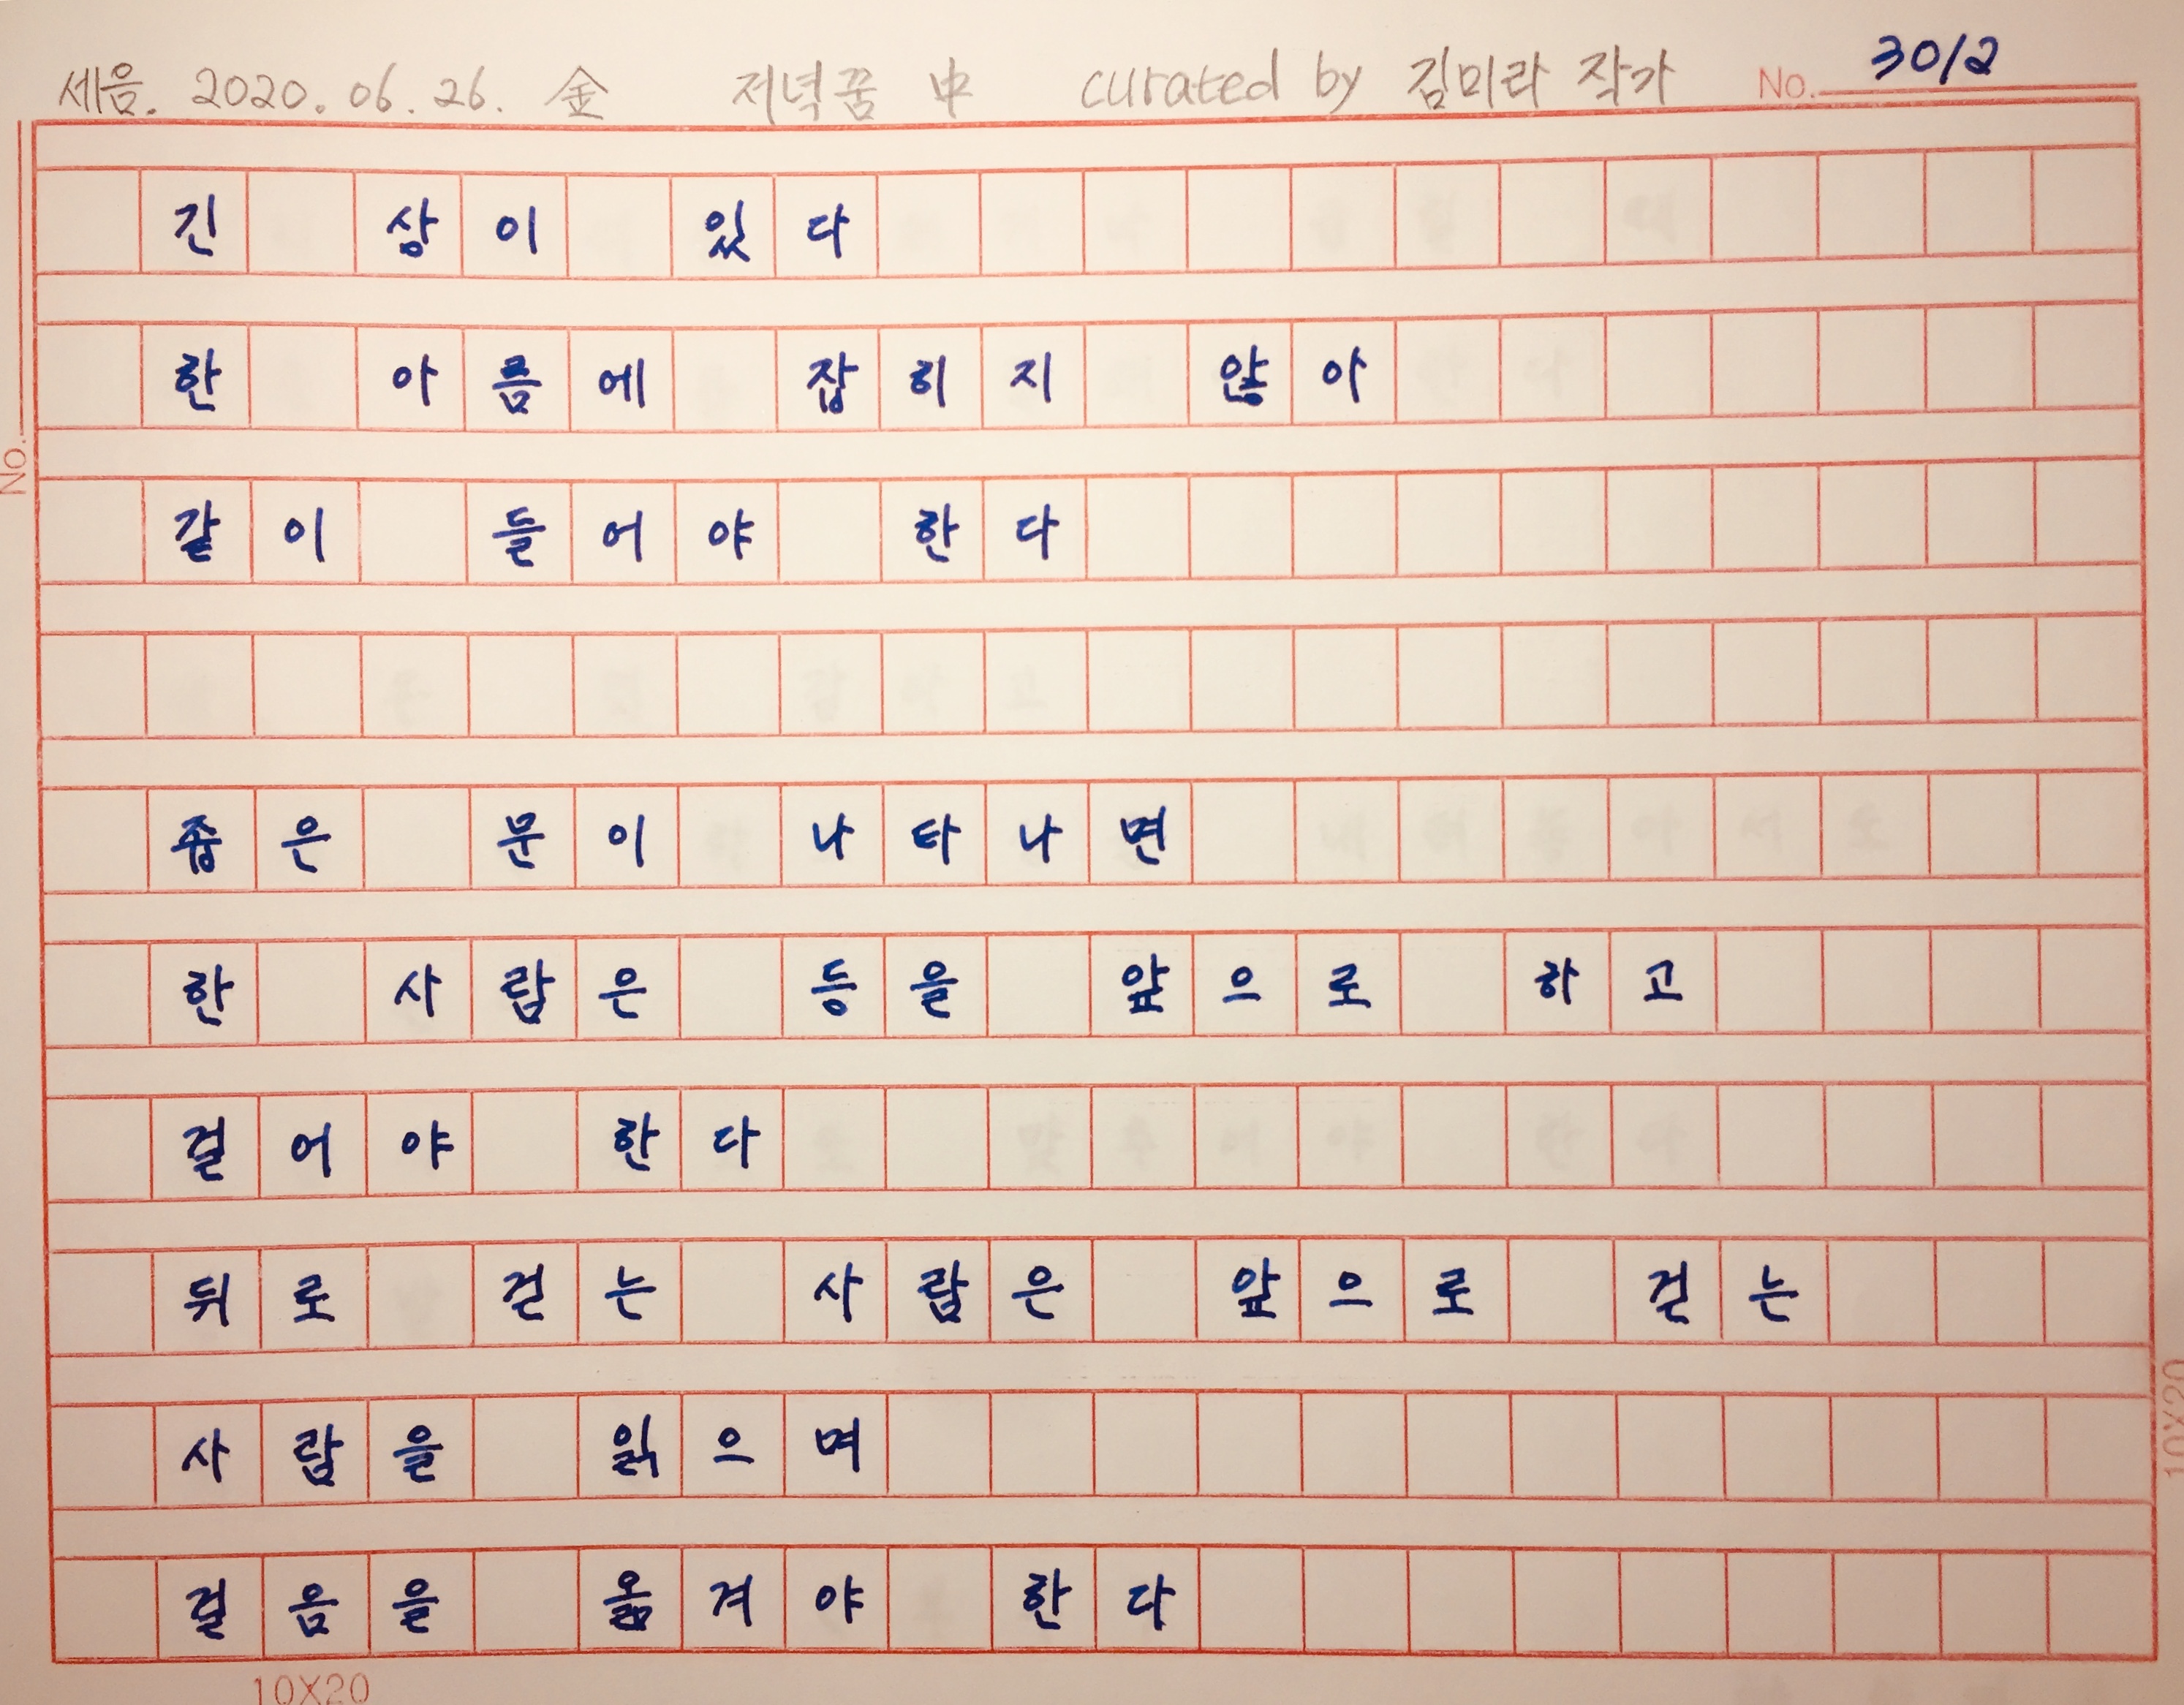 세음. 2020. 06. 26. 金 저녁꿈 中 curated by 김미라 작가 No. 30/2
긴 상이 있다
한 아름에 잡히지 않아
같이 들어야 한다
좁은 문이 나타나면
한 사람은 등을 앞으로 하고
걸어야 한다
뒤로 걷는 사람은 앞으로 걷는
사람을 읽으며
걸음을 옮겨야 한다
No.
10X20
10X20